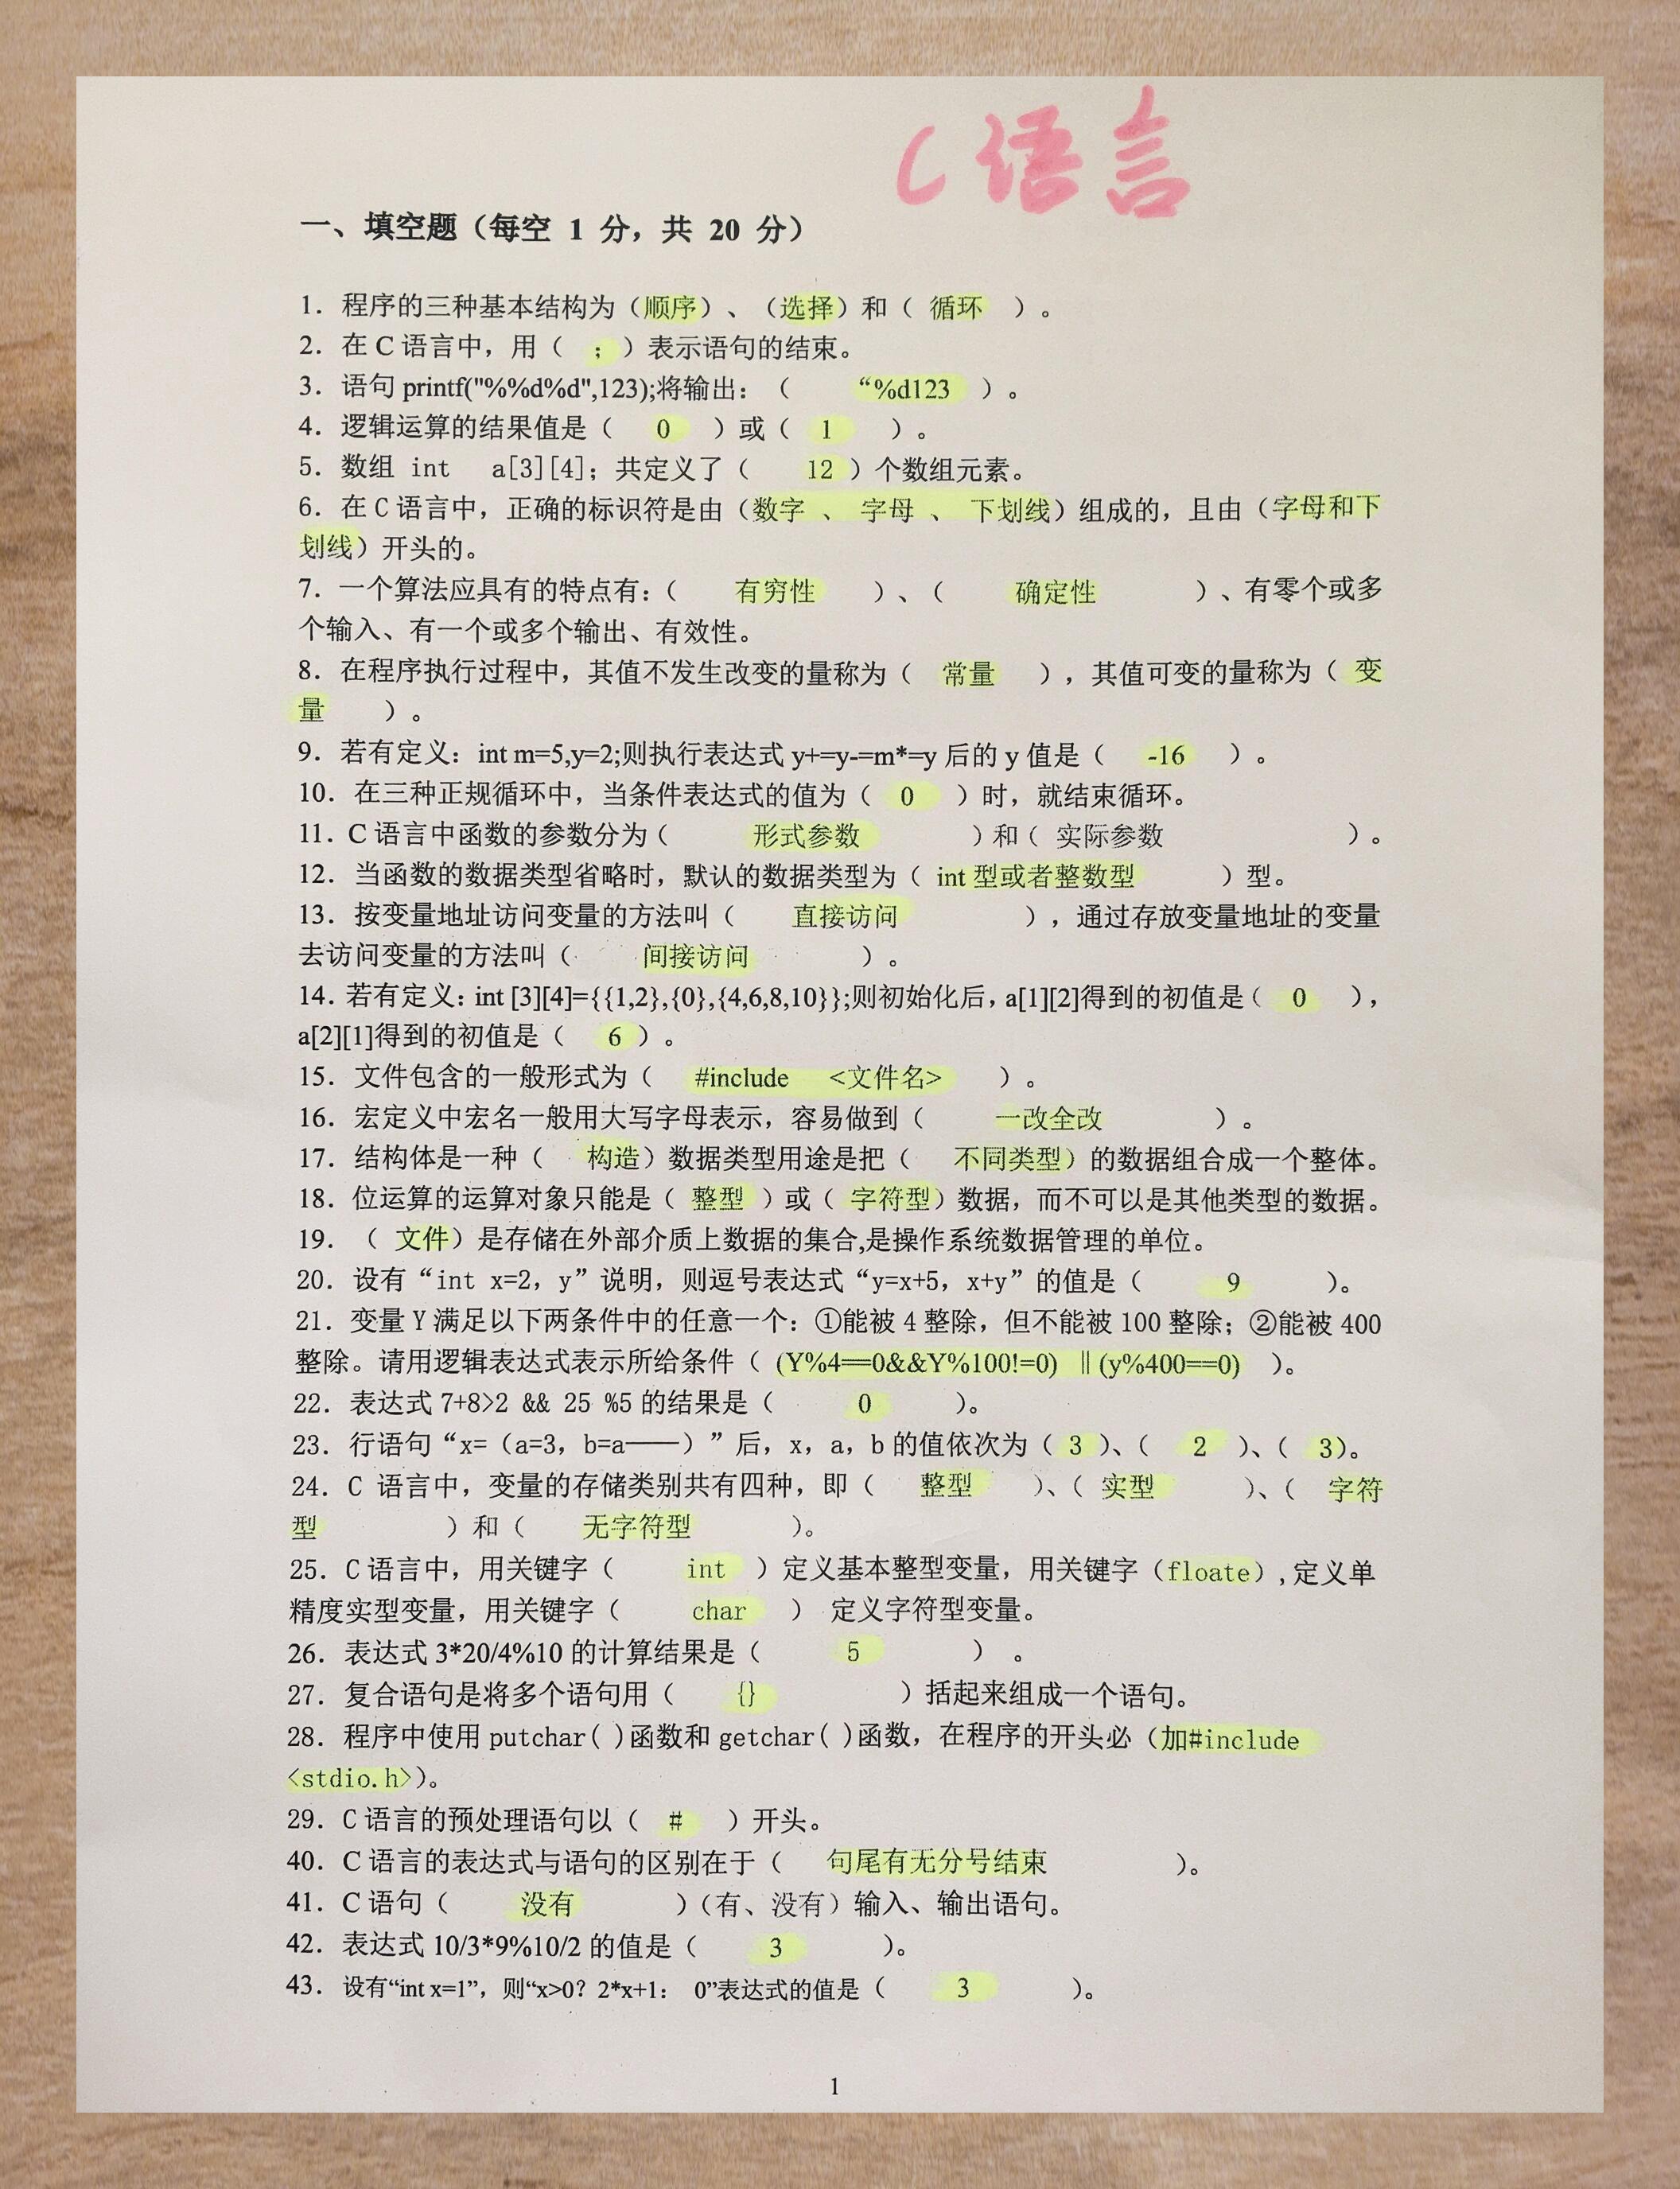 C语言
一、填空题（每空 1 分，共 20 分）
1．程序的三种基本结构为（顺序）、（选择）和（ 循环 ）。
2．在 C 语言中，用（ ；）表示语句的结束。
3．语句 printf("%%d%d",123);将输出：（ “%d123 ）。
4．逻辑运算的结果值是（ 0 ）或（ 1 ）。
5．数组 int a[3][4]；共定义了（ 12 ）个数组元素。
6．在 C 语言中，正确的标识符是由（数字 、 字母 、 下划线）组成的，且由（字母和下
划线）开头的。
7．一个算法应具有的特点有：（ 有穷性 ）、（ 确定性 ）、有零个或多
个输入、有一个或多个输出、有效性。
8．在程序执行过程中，其值不发生改变的量称为（ 常量 ），其值可变的量称为（ 变
量 ）。
9．若有定义：int m=5,y=2;则执行表达式 y+=y-=m*=y 后的 y 值是（ -16 ）。
10．在三种正规循环中，当条件表达式的值为（ 0 ）时，就结束循环。
11．C 语言中函数的参数分为（ 形式参数 ）和（ 实际参数 ）。
12．当函数的数据类型省略时，默认的数据类型为（ int 型或者整数型 ）型。
13．按变量地址访问变量的方法叫（ 直接访问 ），通过存放变量地址的变量
去访问变量的方法叫（ 间接访问 ）。
14．若有定义：int [3][4]={{1,2},{0},{4,6,8,10}};则初始化后，a[1][2]得到的初值是（ 0 ），
a[2][1]得到的初值是（ 6 ）。
15．文件包含的一般形式为（ #include <文件名> ）。
16．宏定义中宏名一般用大写字母表示，容易做到（ 一改全改 ）。
17．结构体是一种（ 构造）数据类型用途是把（ 不同类型）的数据组合成一个整体。
18．位运算的运算对象只能是（ 整型 ）或（ 字符型）数据，而不可以是其他类型的数据。
19．（ 文件）是存储在外部介质上数据的集合,是操作系统数据管理的单位。
20．设有“int x=2，y”说明，则逗号表达式“y=x+5，x+y”的值是（ 9 ）。
21．变量 Y 满足以下两条件中的任意一个：①能被 4 整除，但不能被 100 整除；②能被 400
整除。请用逻辑表达式表示所给条件（ (Y%4==0&&Y%100!=0) ||(y%400==0) ）。
22．表达式 7+8>2 && 25 %5 的结果是（ 0 ）。
23．行语句“x=（a=3，b=a——）”后，x，a，b 的值依次为（ 3 ）、（ 2 ）、（ 3）。
24．C 语言中，变量的存储类别共有四种，即（ 整型 ）、（ 实型 ）、（ 字符
型 ）和（ 无字符型 ）。
25．C 语言中，用关键字（ int ）定义基本整型变量，用关键字（floate）,定义单
精度实型变量，用关键字（ char ） 定义字符型变量。
26．表达式 3*20/4%10 的计算结果是（ 5 ） 。
27．复合语句是将多个语句用（ {} ）括起来组成一个语句。
28．程序中使用 putchar( )函数和 getchar( )函数，在程序的开头必（加#include
<stdio.h>）。
29．C 语言的预处理语句以（ # ）开头。
40．C 语言的表达式与语句的区别在于（ 句尾有无分号结束 ）。
41．C 语句（ 没有 ）（有、没有）输入、输出语句。
42．表达式 10/3*9%10/2 的值是（ 3 ）。
43．设有“int x=1”，则“x>0？2*x+1： 0”表达式的值是（ 3 ）。
1